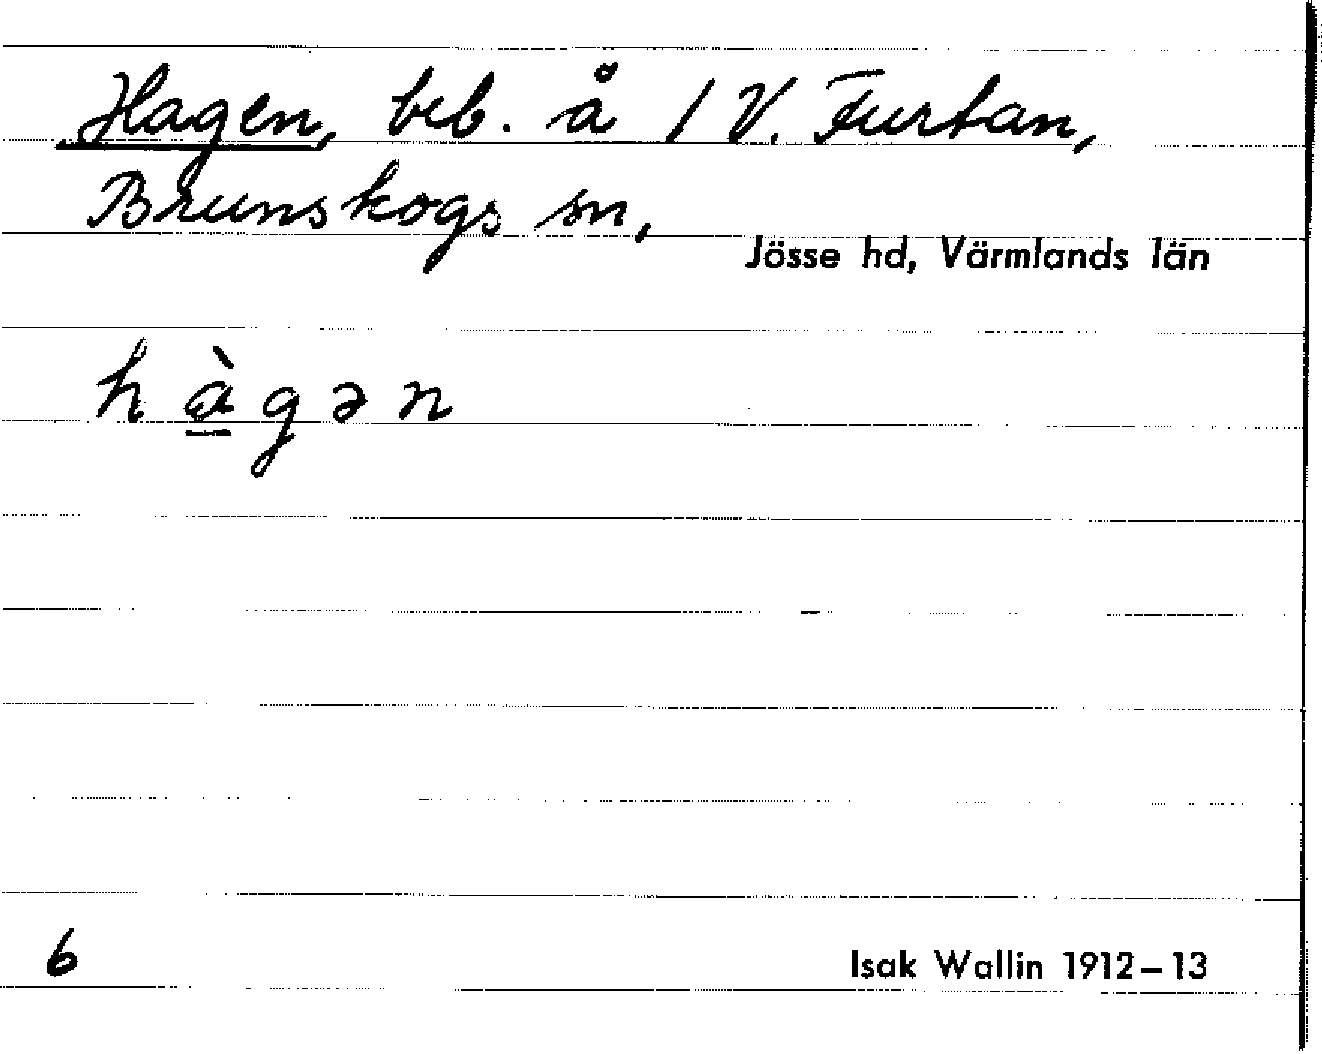 Hagen, beb. å 1 V. Furtan,
Brunskogs sn,
Jösse hd, Värmlands län
hàgən
6
Isak Wallin 1912–13